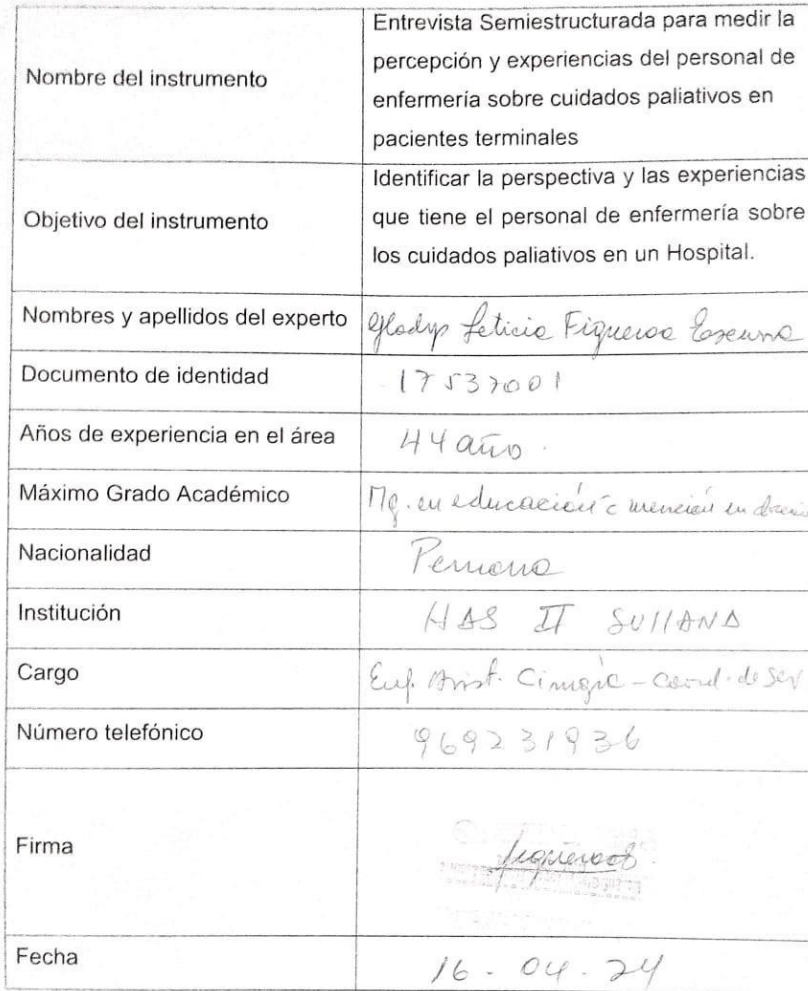 Nombre del instrumento
Entrevista Semiestructurada para medir la
percepción y experiencias del personal de
enfermería sobre cuidados paliativos en
pacientes terminales
Objetivo del instrumento
Identificar la perspectiva y las experiencias
que tiene el personal de enfermería sobre
los cuidados paliativos en un Hospital.
Nombres y apellidos del experto
Gladys Leticia Figueroa
Documento de identidad
17537001
Años de experiencia en el área
44 año.
Máximo Grado Académico
Mg. en educación c mención en
Nacionalidad
Peruana
Institución
HAS II SULLANA
Cargo
Enf. Asist. Cirugía - Coord. de Serv
Número telefónico
969231936
Firma
Fecha
16 - 04 - 24